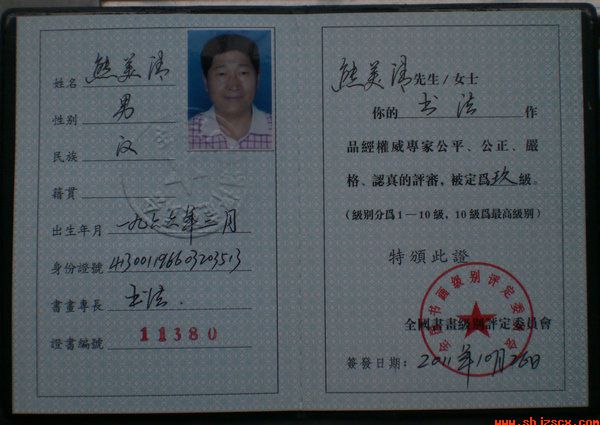 姓名 熊美清
性别 男
民族 汉
籍貫
出生年月 一九六六年三月
身份證號 413001196603203513
書畫專長 书法.
證書編號 11380
熊美清先生/女士
你的 书法 作
品經權威專家公平、公正、嚴
格、認真的評審，被定爲玖級。
（級别分爲1－10級，10級爲最高級别）
特頒此證
全國書畫級别評定委員會
全国书画级别评定委员会
簽發日期：2011年10月26日
www.shjzscx.com